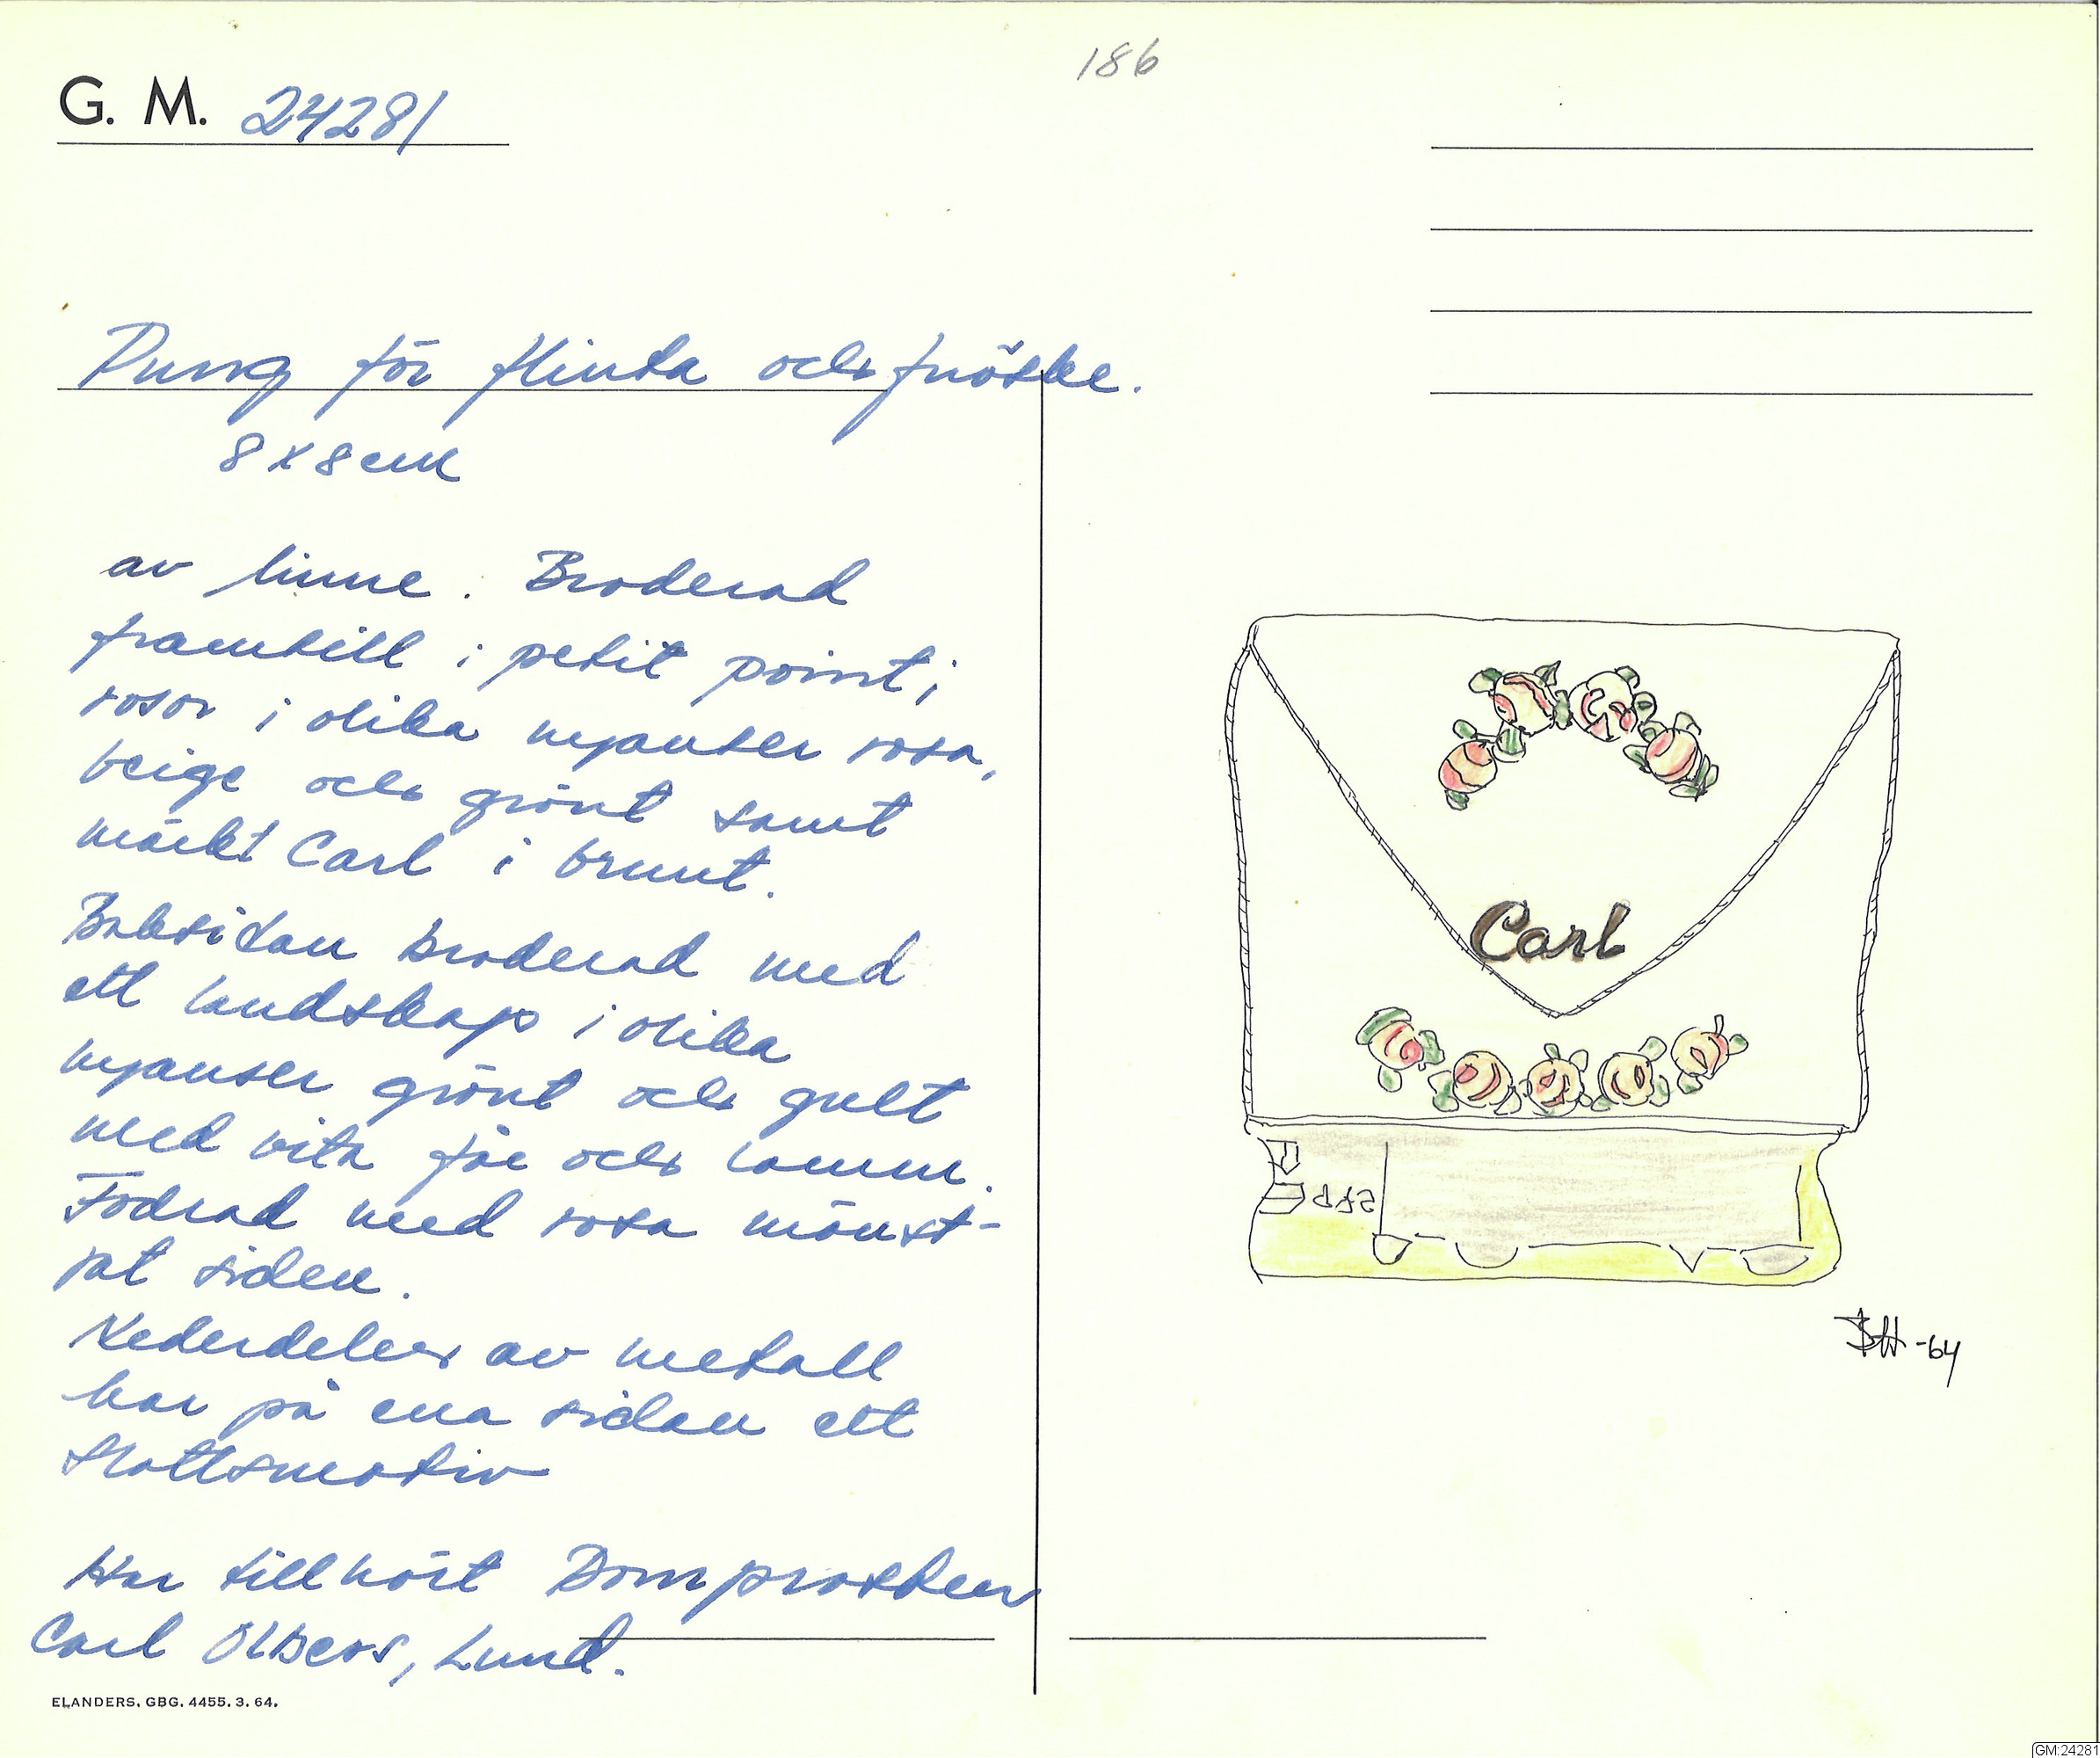 186
G. M. 24281
Pung för flinta och fnöske.
8 x 8 cm
av linne. Broderad
framtill i petit point i
rosor i olika nyanser rosa,
beige och grönt samt
märkt Carl i brunt.
Baksidan broderad med
ett landskap i olika
nyanser grönt och gult
med vita får och lamm.
Fodrad med rosa mönst-
rat siden.
Nederdelen av metall
har på ena sidan ett
slottsmotiv
Har tillhört Domprosten
Carl Olbers, Lund.
ELANDERS. GBG. 4455. 3. 64.
Carl
BH -64
GM:24281